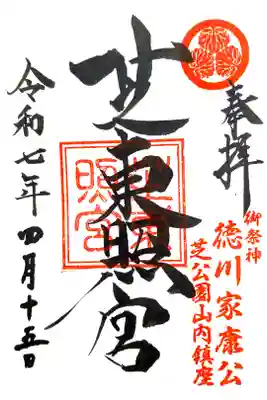 奉拝
御祭神
徳川家康公
芝公園山内鎮座
芝東照宮
芝東照宮
令和七年四月十五日